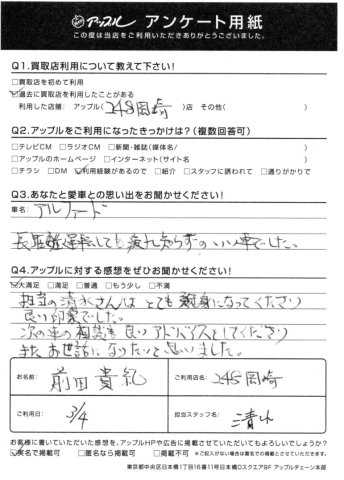 アップル アンケート用紙
この度は当店をご利用いただきありがとうございました。
Q1.買取店利用について教えて下さい!
□買取店を初めて利用
☑過去に買取店を利用したことがある
利用した店舗: アップル(248岡崎)店 その他( )
Q2.アップルをご利用になったきっかけは?(複数回答可)
□テレビCM □ラジオCM □新聞・雑誌(媒体名/ )
□アップルのホームページ □インターネット(サイト名 )
□チラシ □DM ☑利用経験があるので □紹介 □スタッフに誘われて □通りがかりで
Q3.あなたと愛車との思い出をお聞かせください!
車名: アルファード
長距離運転しても疲れ知らずのいい車でした。
Q4.アップルに対する感想をぜひお聞かせください!
☑大満足 □満足 □普通 □もう少し □不満
担当の清水さんはとても親身になってくださり
良い印象でした。
次の車の相談も良いアドバイスをしてくださり
また お世話になりたいと思いました。
お名前: 前田貴紀
ご利用店名: 248岡崎
ご利用日: 3/4
担当スタッフ名: 清水
お客様に書いていただいた感想を、アップルHPや広告に掲載させていただいてもよろしいでしょうか?
☑実名で掲載可 □匿名なら掲載可 □掲載不可 ※ご記入がない場合は匿名での掲載とさせていただきます。
東京都中央区日本橋1丁目16番11号日本橋Dスクエア9F アップルチェーン本部